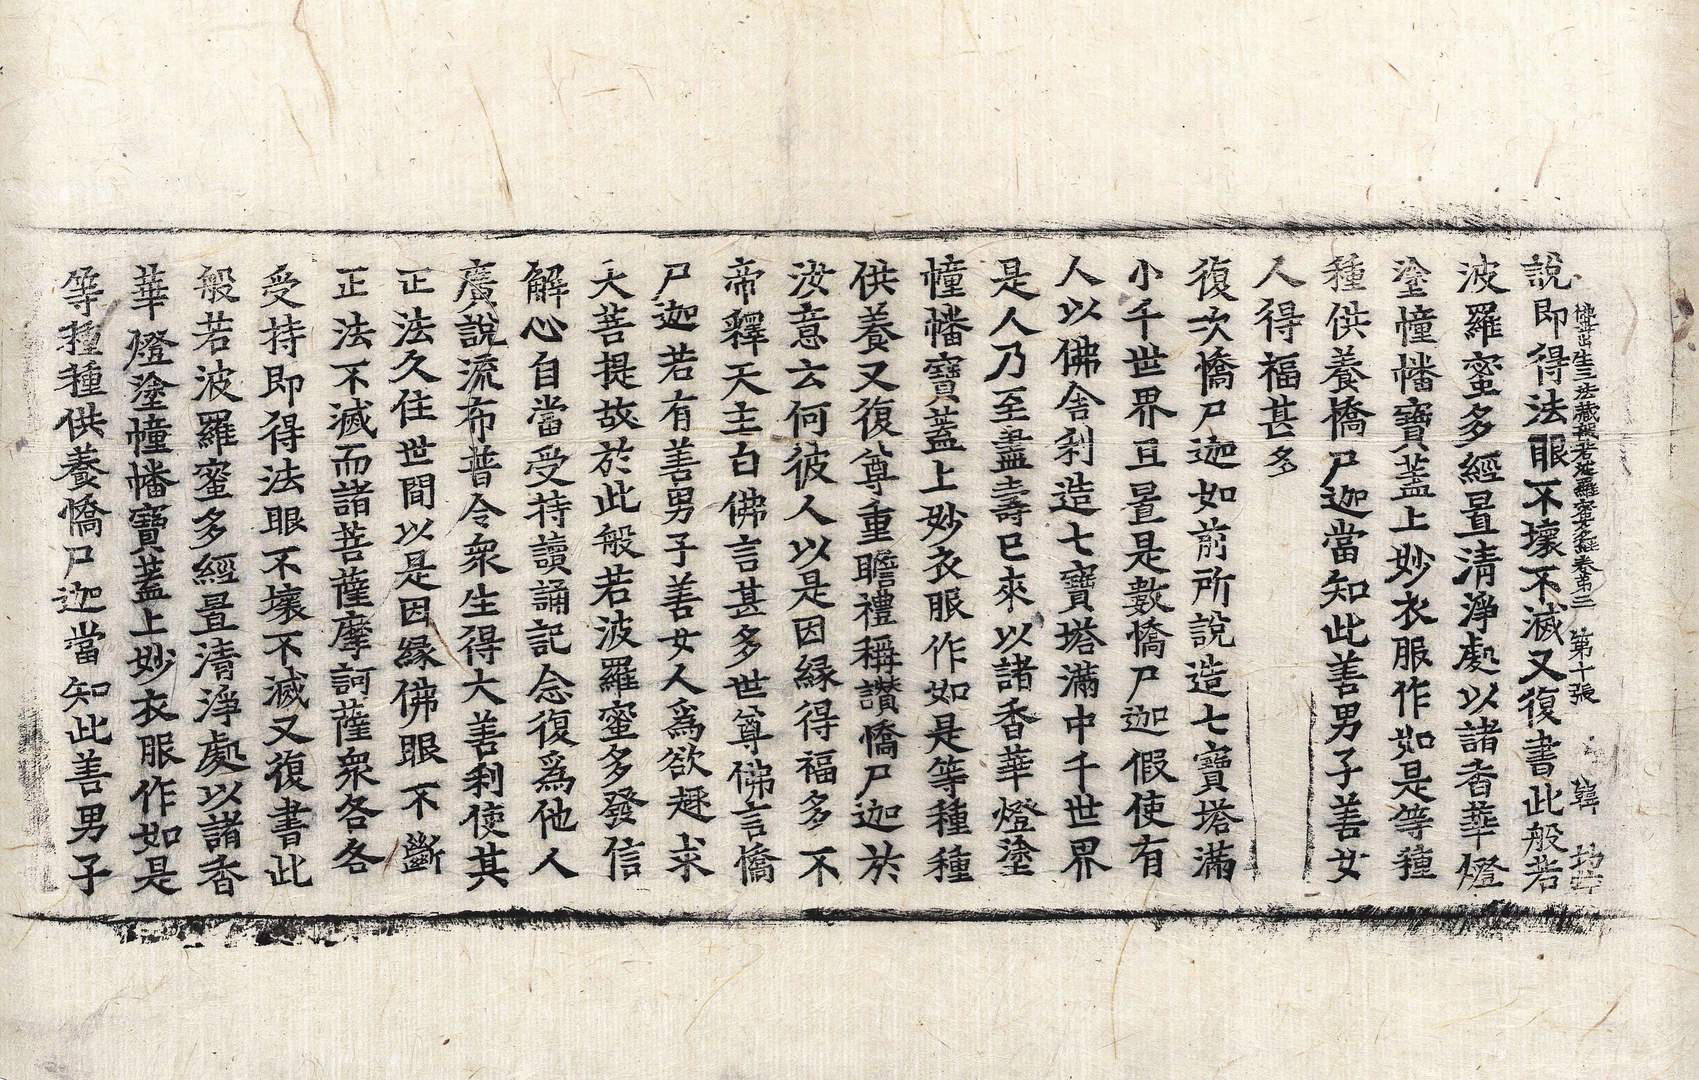 佛母出生三法藏般若波羅蜜多經卷第三 第十張 韓
說即得法眼不壞不滅又復書此般若
波羅蜜多經置清淨處以諸香華燈
塗幢幡寶蓋上妙衣服作如是等種
種供養憍尸迦當知此善男子善女
人得福甚多
復次憍尸迦如前所說造七寶塔滿
小千世界且置是數憍尸迦假使有
人以佛舍利造七寶塔滿中千世界
是人乃至盡壽已來以諸香華燈塗
幢幡寶蓋上妙衣服作如是等種種
供養又復尊重瞻禮稱讚憍尸迦於
汝意云何彼人以是因緣得福多不
帝釋天主白佛言甚多世尊佛言憍
尸迦若有善男子善女人為欲趣求
大菩提故於此般若波羅蜜多發信
解心自當受持讀誦記念復為他人
廣說流布普令眾生得大善利使其
正法久住世間以是因緣佛眼不斷
正法不滅而諸菩薩摩訶薩眾各各
受持即得法眼不壞不滅又復書此
般若波羅蜜多經置清淨處以諸香
華燈塗幢幡寶蓋上妙衣服作如是
等種種供養憍尸迦當知此善男子